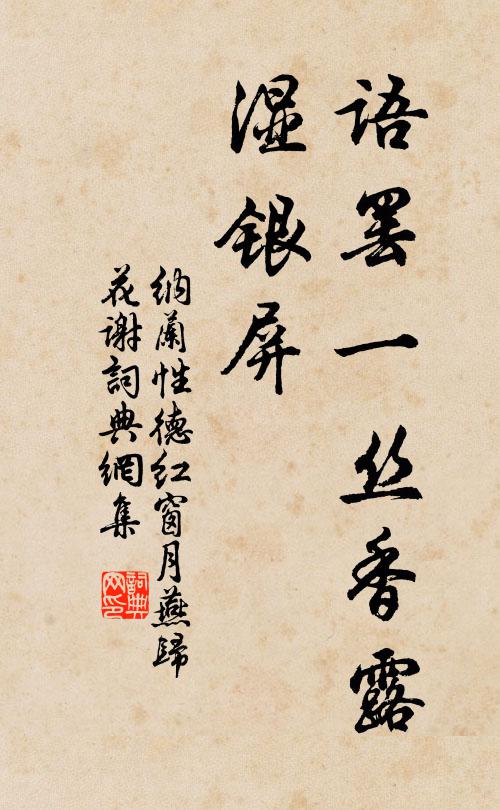 语罢一丝香露
湿银屏
纳兰性德红窗月燕歸
花谢詞典網集
詞典
网印